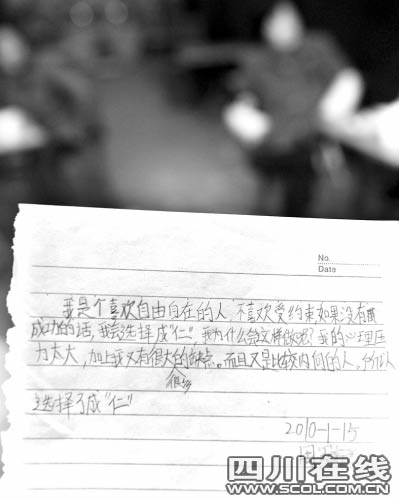 No.
Date
我是个喜欢自由自在的人 不喜欢受约束如果没有
成功的话,我会选择成"仁",我为什么会这样做呢?我的心理压
力太大,加上我又有很大的缺点。而且又是比较内向的人,所以
很多
选择了成"仁"
2010-1-15
四川在线
WWW.SCOL.COM.CN